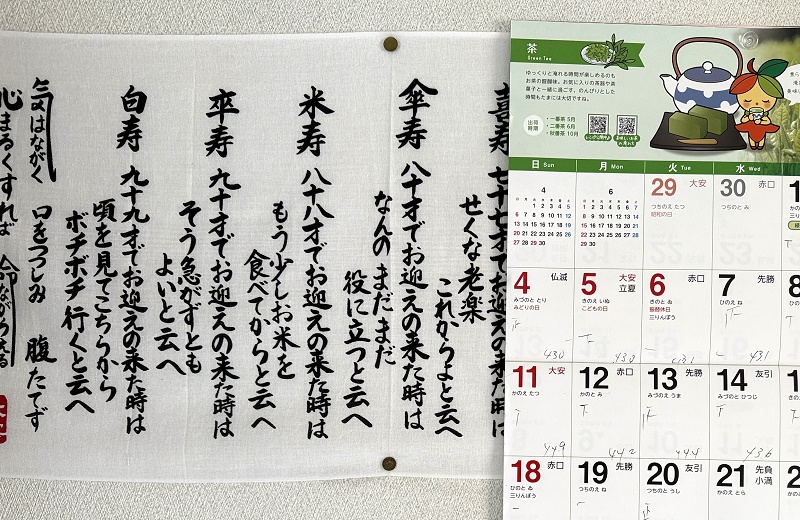 喜寿 七十七才でお迎えの来た時は
せくな老楽
これからよと云へ
傘寿 八十才でお迎えの来た時は
なんのまだまだ
役に立つと云へ
米寿 八十八才でお迎えの来た時は
もう少しお米を
食べてからと云へ
卒寿 九十才でお迎えの来た時は
そう急がずとも
よいと云へ
白寿 九十九才でお迎えの来た時は
頃を見てこちらから
ボチボチ行くと云へ
気はながく 口をつつしみ 腹たてず
心まるくすれば 命ながらえる
茶
Green Tea
ゆっくりと淹れる時間が楽しめるのも
お茶の醍醐味。お気に入りの茶器や茶
菓子と一緒に過ごす、のんびりとした
時間もたまには大切ですね。
出荷時期
・一番茶 5月
・二番茶 6月
・秋番茶 10月
日 Sun 月 Mon 火 Tue 水 Wed
4
日 月 火 水 木 金 土
1 2 3 4 5
6 7 8 9 10 11 12
13 14 15 16 17 18 19
20 21 22 23 24 25 26
27 28 29 30
6
日 月 火 水 木 金 土
1 2 3 4 5 6 7
8 9 10 11 12 13 14
15 16 17 18 19 20 21
22 23 24 25 26 27 28
29 30
29 大安
つちのえ たつ
昭和の日
30 赤口
つちのと み
4 仏滅
みづのと とり
みどりの日
430
5 大安
立夏
きのえ いぬ
こどもの日
430
6 赤口
きのと ゐ
振替休日
三りんぼう
431
7 先勝
ひのえ ね
431
8
11 大安
かのえ たつ
449
12 赤口
かのと み
442
13 先勝
みづのえ うま
444
14 友引
みづのと ひつじ
436
18 赤口
ひのと ゐ
三りんぼう
19 先勝
つちのえ ね
20 友引
つちのと うし
21 先負
小満
かのえ とら